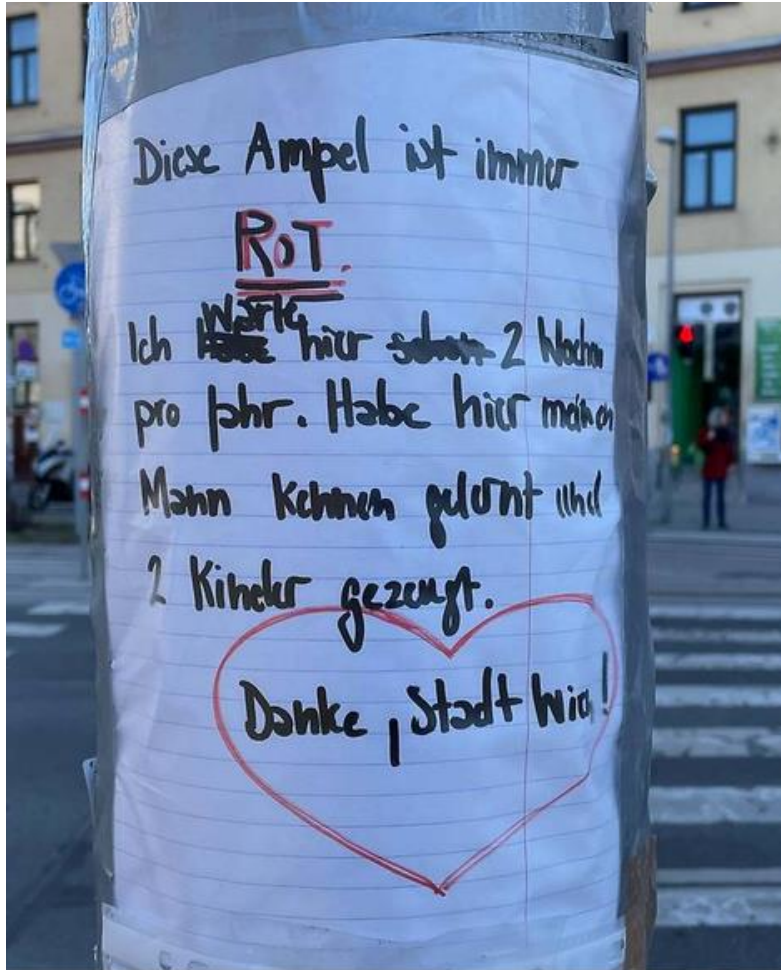 Diese Ampel ist immer
ROT.
Ich warte hier 2 Wochen
pro Jahr. Habe hier meinen
Mann kennen gelernt und
2 Kinder gezeugt.
Danke, Stadt Wien!